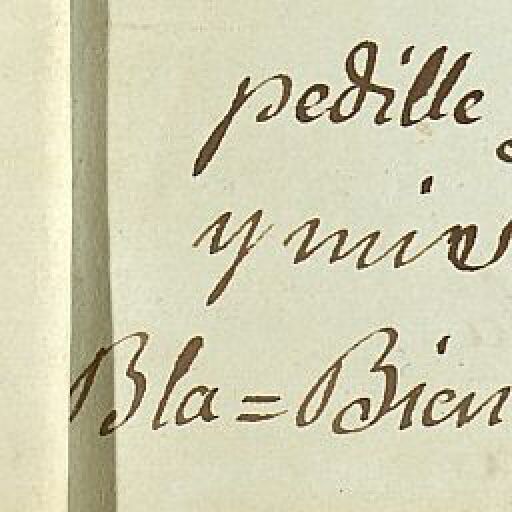 pedille
y mis
Bla = Bien